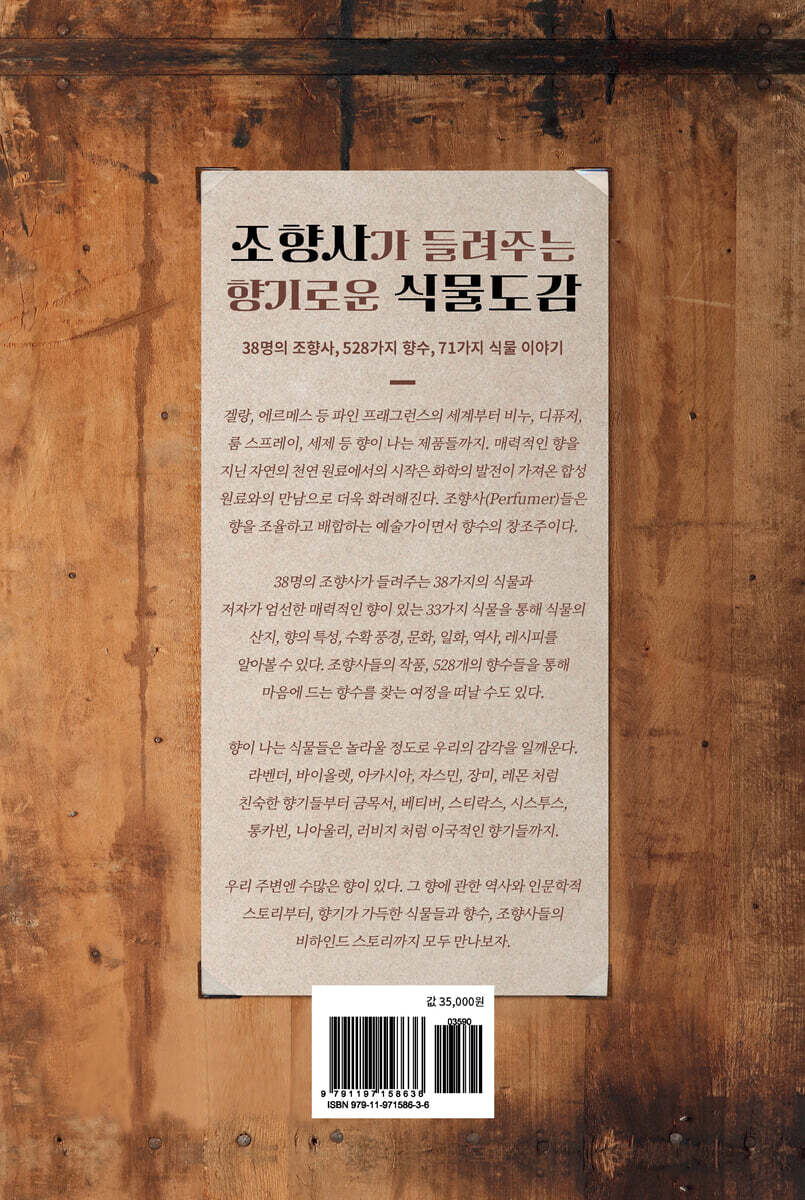 조향사가 들려주는
향기로운 식물도감
38명의 조향사, 528가지 향수, 71가지 식물 이야기
겔랑, 에르메스 등 파인 프래그런스의 세계부터 비누, 디퓨저,
룸 스프레이, 세제 등 향이 나는 제품들까지. 매력적인 향을
지닌 자연의 천연 원료에서의 시작은 화학의 발전이 가져온 합성
원료와의 만남으로 더욱 화려해진다. 조향사(Perfumer)들은
향을 조율하고 배합하는 예술가이면서 향수의 창조주이다.
38명의 조향사가 들려주는 38가지의 식물과
저자가 엄선한 매력적인 향이 있는 33가지 식물을 통해 식물의
산지, 향의 특성, 수확 풍경, 문화, 일화, 역사, 레시피를
알아볼 수 있다. 조향사들의 작품, 528개의 향수들을 통해
마음에 드는 향수를 찾는 여정을 떠날 수도 있다.
향이 나는 식물들은 놀라울 정도로 우리의 감각을 일깨운다.
라벤더, 바이올렛, 아카시아, 자스민, 장미, 레몬 처럼
친숙한 향기들부터 금목서, 베티버, 스티락스, 시스투스,
통카빈, 니아울리, 러비지 처럼 이국적인 향기들까지.
우리 주변엔 수많은 향이 있다. 그 향에 관한 역사와 인문학적
스토리부터, 향기가 가득한 식물들과 향수, 조향사들의
비하인드 스토리까지 모두 만나보자.
값 35,000원
03590
9 791197 158636
ISBN 979-11-971586-3-6